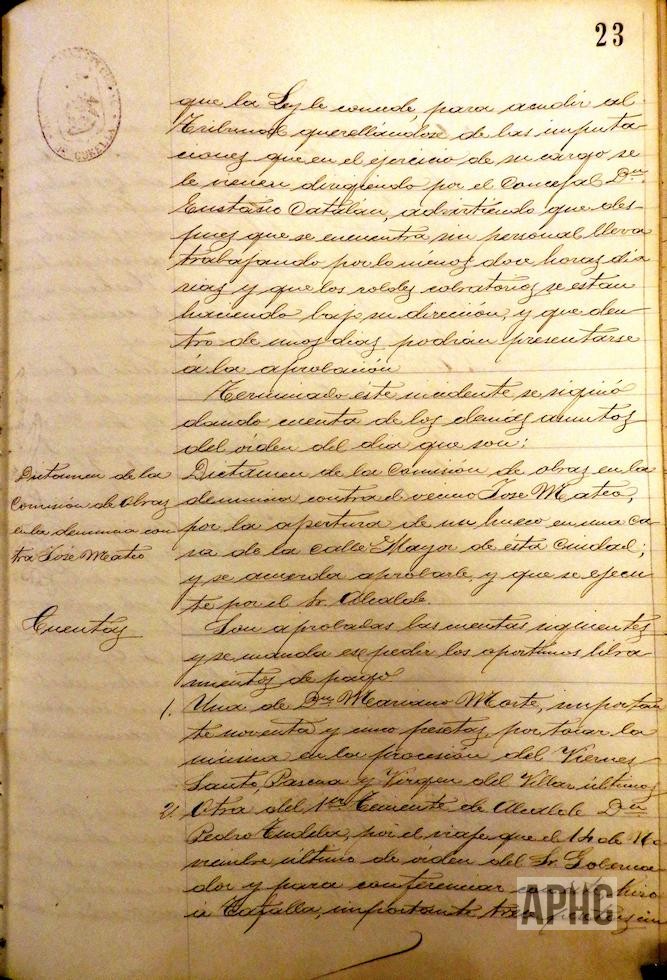 23
que la Ley le concede, para acudir al
Tribunal querellándose de las imputa
ciones que en el ejercicio de su cargo se
le vienen dirigiendo por el Concejal Dn.
Eustasio Catalán, advirtiendo que des-
pues que se encuentra sin personal lleva
trabajando por lo menos doce horas dia
rias y que los roldes cobratorios se estan
haciendo bajo su dirección, y que den-
tro de unos dias podrán presentarse
á la aprobación
Terminado este incidente, se siguió
dando cuenta de los demás asuntos
del órden del dia que son:
Dictamen de la
Comisión de Obras
en la denuncia con
tra José Mateo
Dictamen de la Comisión de obras en la
denuncia contra el vecino José Mateo,
por la apertura de un hueco en una ca
sa de la calle Mayor de esta Ciudad;
y se acuerda aprobarle, y que se ejecu
te por el Sr. Alcalde.
Cuentas
Son aprobadas las cuentas siguientes
y se manda expedir los oportunos libra
mientos de pago
1. Una de Dn. Mariano Marte, importan
te noventa y una pesetas, por tocar la
música en la procesión del Viernes
Santo, Pascua y Virgen del Villar últimos
2. Otra del 1er. Teniente de Alcalde Dn.
Pedro Tudela, por el viaje que el 14 de No
viembre último de órden del Sr. Goberna
dor y para conferenciar hizo
á Tafalla, importante
APHC